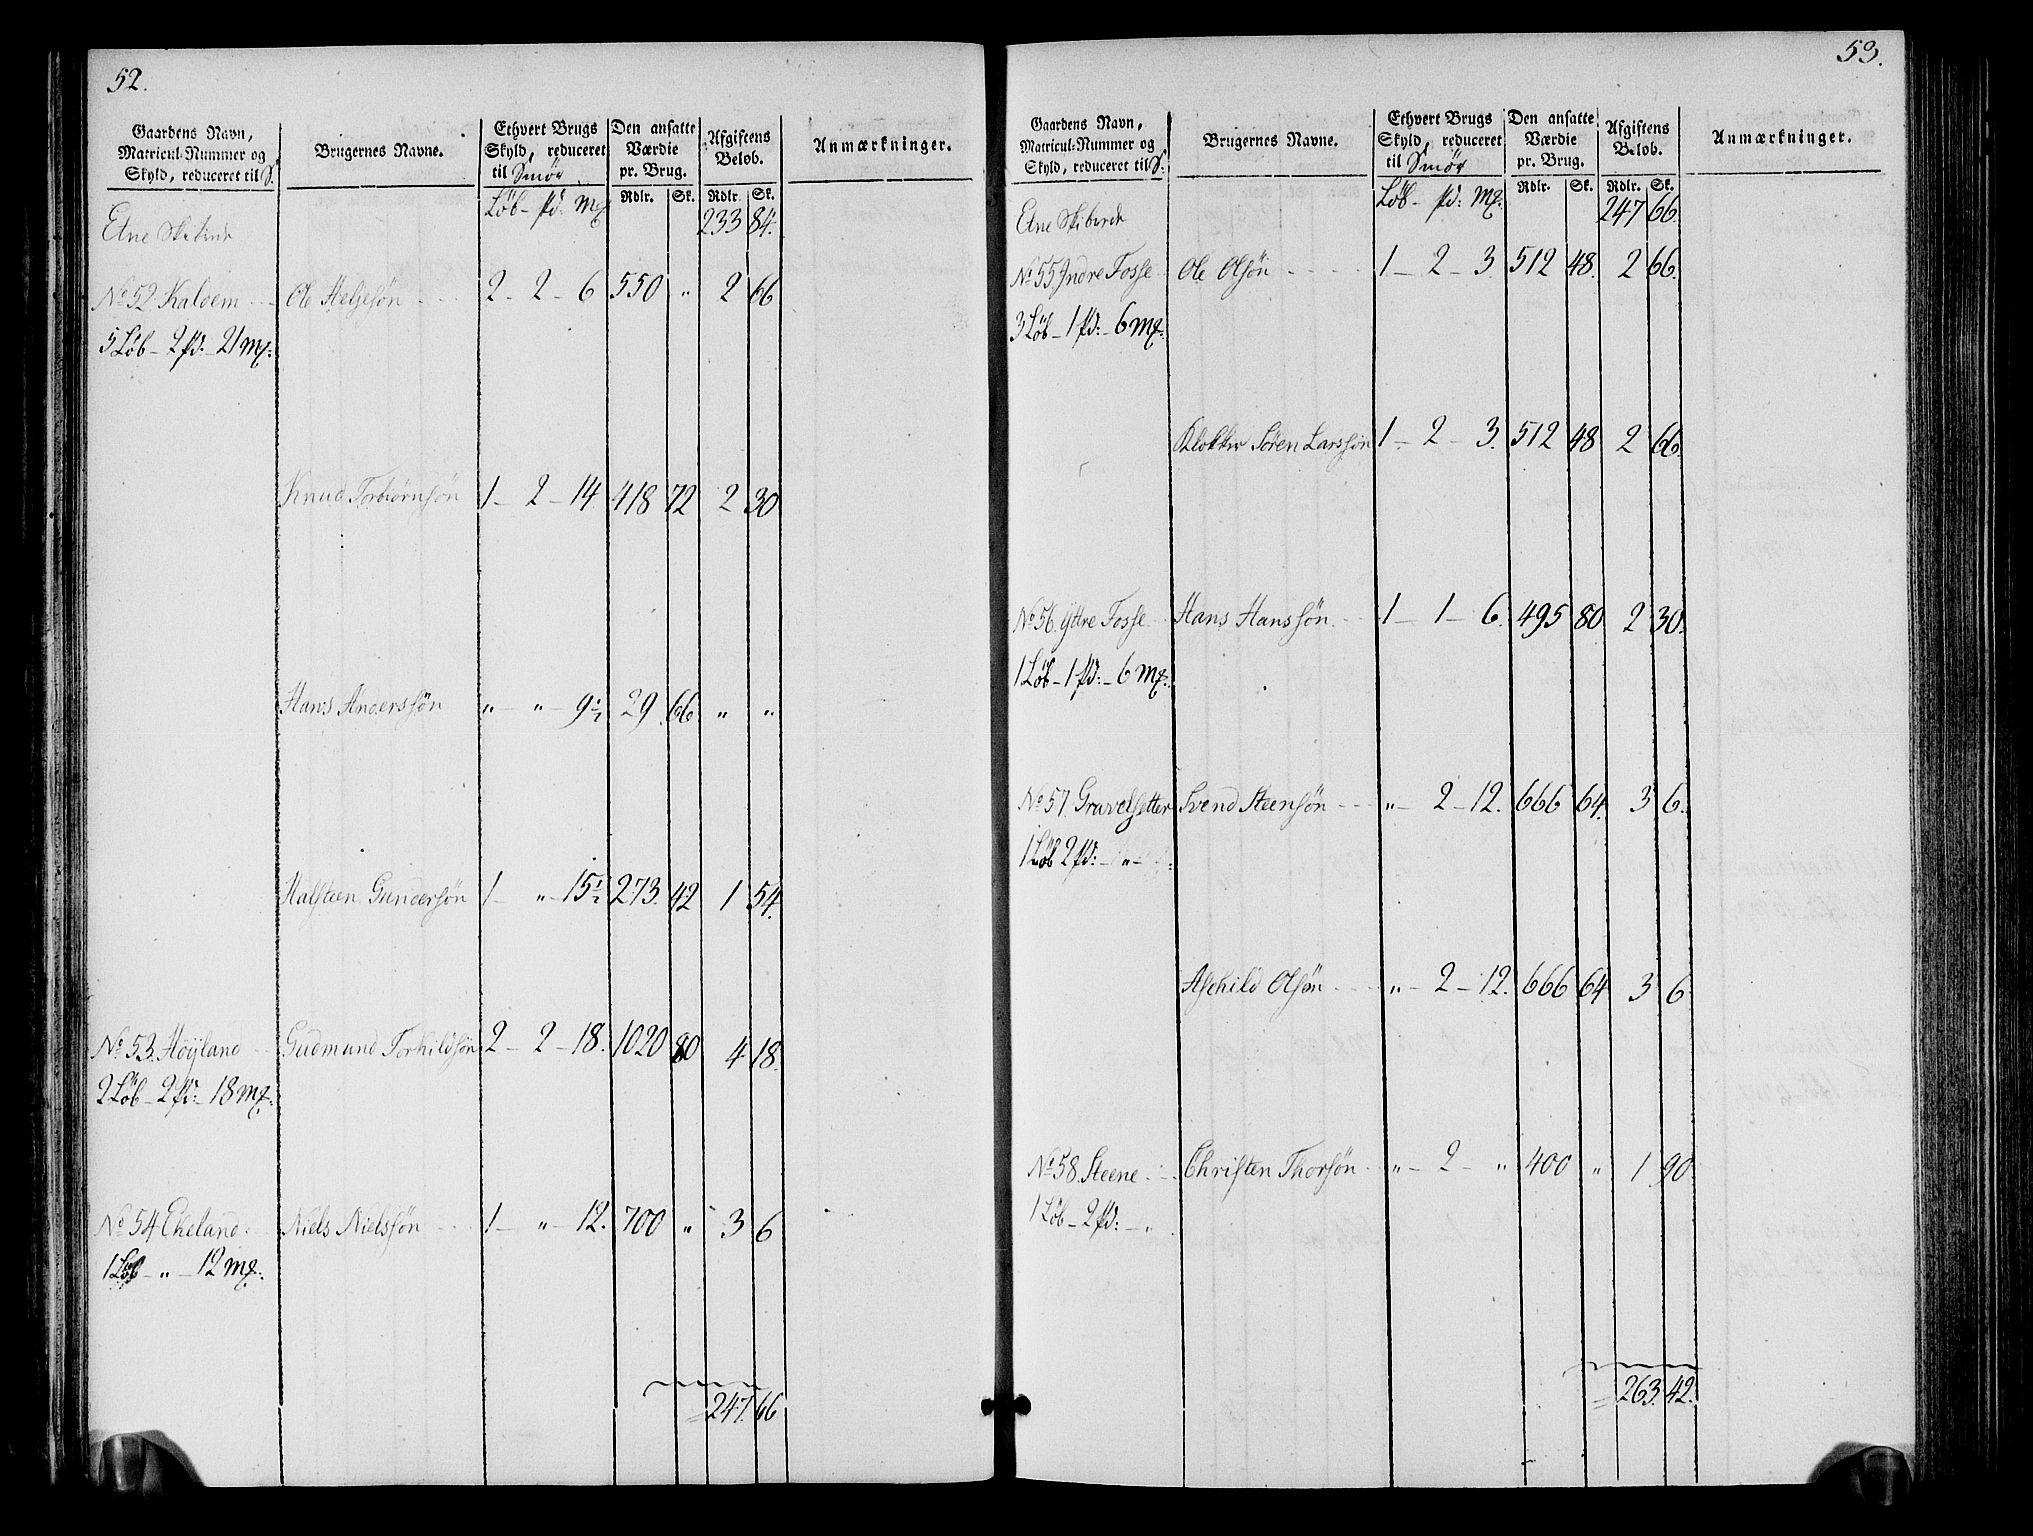 52.
Gaardens Navn, Matricul-Nummer og Skyld, reduceret til S.
Brugernes Navne.
Ethvert Brugs Skyld, reduceret til Smør
Den ansatte Værdie pr. Brug.
Afgiftens Beløb.
Anmærkninger.
Løb - pd: mg Rdlr. Sk. Rdlr Sk.
Etne Skibrede 233 84.
No 52 Kaldem - Ole Helgesøn - 2 - 2 - 6 550 " 2 66
5 Løb - 2 pd: - 21 mg:
Knud Torbiørnsøn 1 - 2 - 14 418 72 2 30
Hans Anderssøn " - " - 9½ 29 66 " "
Halsteen Gundersøn 1 - " - 15½ 273. 42 1 54.
No 53. Høyland Gudmund Torkildsøn 2 - 2 - 18. 1020 80 4 18.
2 Løb - 2 pd: - 18 mg:
No 54 Ekeland Niels Nielssøn 1 - " - 12. 700 " 3 6
1 Løb - " - 12 mg:
= 247. 66
53.
Gaardens Navn, Matricul-Nummer og Skyld, reduceret til S.
Brugernes Navne.
Ethvert Brugs Skyld, reduceret til Smør
Den ansatte Værdie pr. Brug.
Afgiftens Beløb.
Anmærkninger.
Løb - pd: mg. Rdlr. Sk. Rdlr. Sk.
Etne Skibrede 247 66.
No 55. Indre Fosse Ole Olsøn 1 - 2 - 3. 512 48. 2 66.
3 Løb - 1 pd: - 6 mg:
Klokker Søren Larssøn 1 - 2 - 3. 512 48 2 66.
No 56. Yttre Fosse Hans Hanssøn. 1 - 1 - 6. 495 80 2 30.
1 Løb - 1 pd: - 6 mg:
No 57. Gravelsetter Svend Steensøn " - 2 - 12. 666 64. 3 6.
1 Løb 2 pd: - " -
Aschild Olsøn " - 2 - 12. 666 64 3 6
No 58. Steene Christen Thorsøn " - 2 - " 400 " 1 90
1 Løb - 2 pd: - "
= 263. 42.